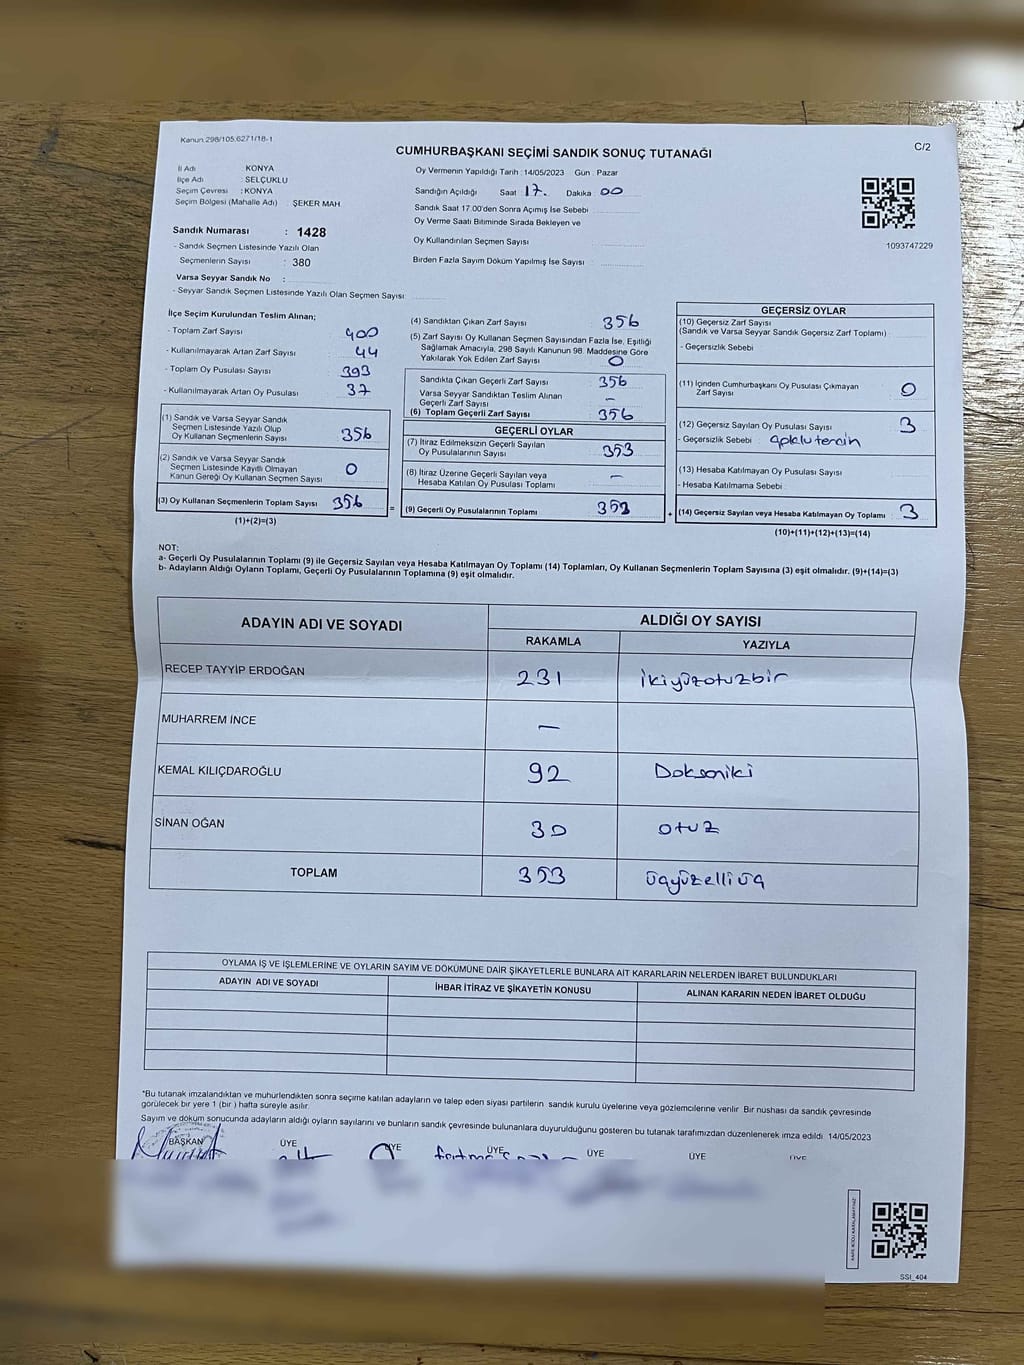 Kanun 298/105,6271/18-1
CUMHURBAŞKANI SEÇİMİ SANDIK SONUÇ TUTANAĞI
C/2
İl Adı KONYA
İlçe Adı : SELÇUKLU
Seçim Çevresi : KONYA
Seçim Bölgesi (Mahalle Adı) : ŞEKER MAH
Sandık Numarası : 1428
- Sandık Seçmen Listesinde Yazılı Olan
Seçmenlerin Sayısı : 380
Varsa Seyyar Sandık No :
- Seyyar Sandık Seçmen Listesinde Yazılı Olan Seçmen Sayısı
Oy Vermenin Yapıldığı Tarih : 14/05/2023 Gün : Pazar
Sandığın Açıldığı Saat 17. Dakika 00
Sandık Saat 17.00'den Sonra Açımış İse Sebebi
Oy Verme Saati Bitiminde Sırada Bekleyen ve
Oy Kullandırılan Seçmen Sayısı
Birden Fazla Sayım Döküm Yapılmış İse Sayısı
1093747229
İlçe Seçim Kurulundan Teslim Alınan;
- Toplam Zarf Sayısı 400
- Kullanılmayarak Artan Zarf Sayısı 44
- Toplam Oy Pusulası Sayısı 393
- Kullanılmayarak Artan Oy Pusulası 37
(1) Sandık ve Varsa Seyyar Sandık
Seçmen Listesinde Yazılı Olup
Oy Kullanan Seçmenlerin Sayısı : 356
(2) Sandık ve Varsa Seyyar Sandık
Seçmen Listesinde Kayıtlı Olmayan
Kanun Gereği Oy Kullanan Seçmen Sayısı 0
(3) Oy Kullanan Seçmenlerin Toplam Sayısı 356
(1)+(2)=(3)
(4) Sandıktan Çıkan Zarf Sayısı 356
(5) Zarf Sayısı Oy Kullanan Seçmen Sayısından Fazla İse, Eşitliği
Sağlamak Amacıyla, 298 Sayılı Kanunun 98. Maddesine Göre
Yakılarak Yok Edilen Zarf Sayısı 0
Sandıkta Çıkan Geçerli Zarf Sayısı 356
Varsa Seyyar Sandıktan Teslim Alınan
Geçerli Zarf Sayısı –
(6) Toplam Geçerli Zarf Sayısı 356
GEÇERLİ OYLAR
(7) İtiraz Edilmeksizin Geçerli Sayılan
Oy Pusulalarının Sayısı : 353
(8) İtiraz Üzerine Geçerli Sayılan veya
Hesaba Katılan Oy Pusulası Toplamı –
= (9) Geçerli Oy Pusulalarının Toplamı 353
GEÇERSİZ OYLAR
(10) Geçersiz Zarf Sayısı
(Sandık ve Varsa Seyyar Sandık Geçersiz Zarf Toplamı)
- Geçersizlik Sebebi
(11) İçinden Cumhurbaşkanı Oy Pusulası Çıkmayan
Zarf Sayısı 0
(12) Geçersiz Sayılan Oy Pusulası Sayısı 3
- Geçersizlik Sebebi :
(13) Hesaba Katılmayan Oy Pusulası Sayısı
- Hesaba Katılmama Sebebi
+ (14) Geçersiz Sayılan veya Hesaba Katılmayan Oy Toplamı 3
(10)+(11)+(12)+(13)=(14)
NOT:
a- Geçerli Oy Pusulalarının Toplamı (9) ile Geçersiz Sayılan veya Hesaba Katılmayan Oy Toplamı (14) Toplamları, Oy Kullanan Seçmenlerin Toplam Sayısına (3) eşit olmalıdır. (9)+(14)=(3)
b- Adayların Aldığı Oyların Toplamı, Geçerli Oy Pusulalarının Toplamına (9) eşit olmalıdır.
ADAYIN ADI VE SOYADI ALDIĞI OY SAYISI
RAKAMLA YAZIYLA
RECEP TAYYİP ERDOĞAN 231 ikiyüzotuzbir
MUHARREM İNCE –
KEMAL KILIÇDAROĞLU 92 Doksaniki
SİNAN OĞAN 30 otuz
TOPLAM 353 üçyüzelliüç
OYLAMA İŞ VE İŞLEMLERİNE VE OYLARIN SAYIM VE DÖKÜMÜNE DAİR ŞİKAYETLERLE BUNLARA AİT KARARLARIN NELERDEN İBARET BULUNDUKLARI
ADAYIN ADI VE SOYADI İHBAR İTİRAZ VE ŞİKAYETİN KONUSU ALINAN KARARIN NEDEN İBARET OLDUĞU
*Bu tutanak imzalandıktan ve mühürlendikten sonra seçime katılan adayların ve talep eden siyasi partilerin sandık kurulu üyelerine veya gözlemcilerine verilir Bir nüshası da sandık çevresinde
görülecek bir yere 1 (bir) hafta süreyle asılır.
Sayım ve döküm sonucunda adayların aldığı oyların sayılarını ve bunların sandık çevresinde bulunanlara duyurulduğunu gösteren bu tutanak tarafımızdan düzenlenerek imza edildi 14/05/2023
BAŞKAN ÜYE ÜYE ÜYE ÜYE ÜYE ÜYE
SSİ_404